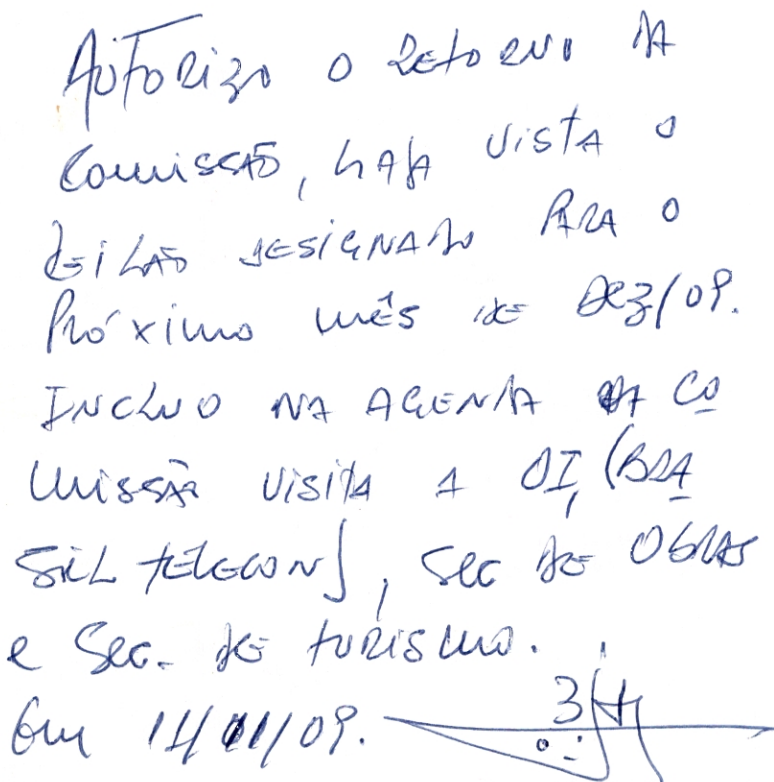 AUTORIZO O RETORNO DA
COMISSÃO, HAJA VISTA O
LEILÃO DESIGNADO PARA O
PRÓXIMO MÊS DE DEZ/09.
INCLUO NA AGENDA DA CO
MISSÃO VISITA A OI, (BRA
SIL TELECON), SEC DE OBRAS
e SEC. DE TURISMO.
Em 11/09.